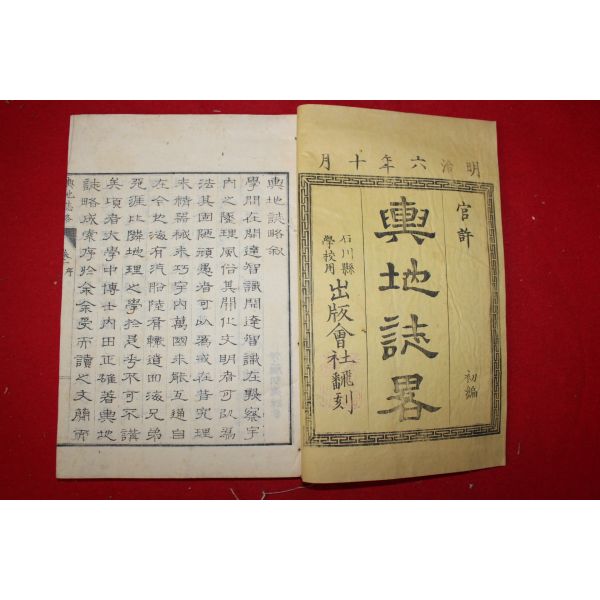 明治六年十月
官許
輿地誌畧
初編
石川縣
學校用
出版會社飜刻
輿地誌略叙
學問在開達智識開達智識在觀察宇
內之陵理風俗其開化文明者可以爲
法其固陋頑愚者可以爲戒在昔究理
未精器械未巧宇內萬國未能互通自
在今也海有汽船陸有轍道四海兄弟
死涯比隣地理之學於是乎不可不講
矣頃者大學中博士內田正雄著輿地
誌略成索序於余余受而讀之文簡而
輿地誌略
卷一序